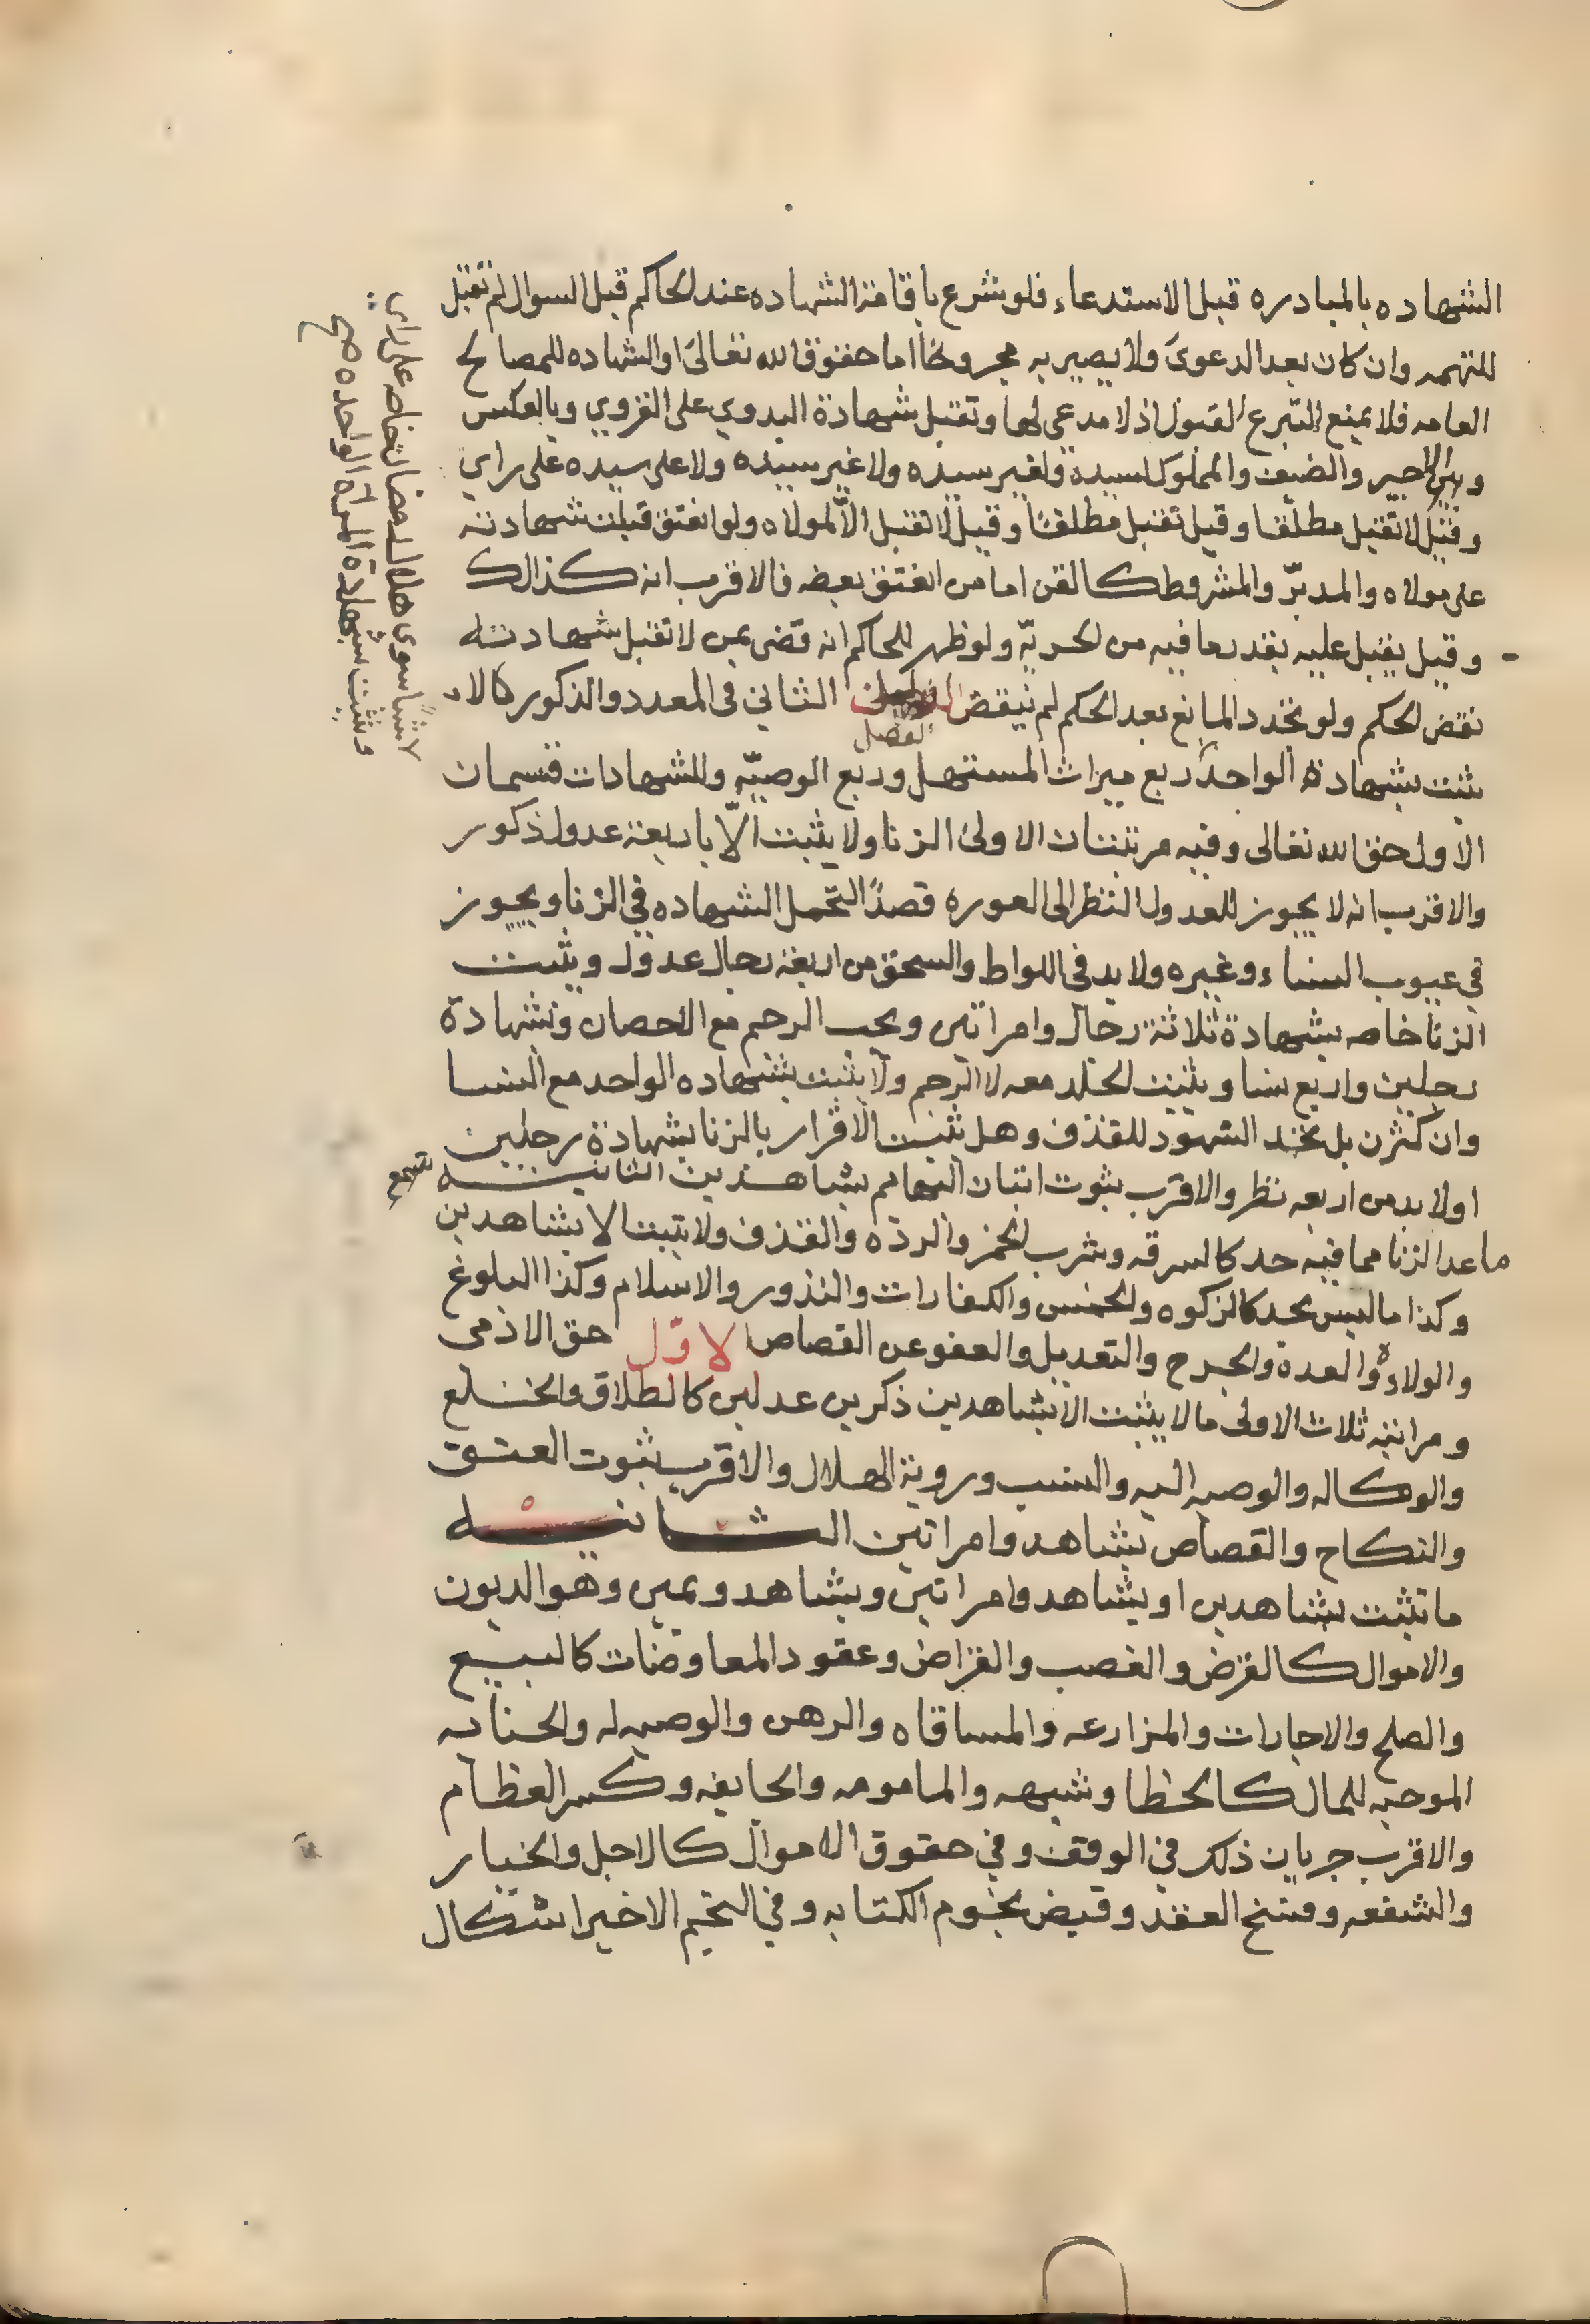 الشهاده بالمبادره قبل الاستدعاء فلو شرع باقامة الشهاده عند الحاكم قبل السوال لم تقبل
للتهمه وان كان بعد الدعوى ولا يصير به مجروحا اما حقوق الله تعالى او الشهاده للمصالح
العامه فلا يمنع التبرع القبول اذ لا مدعي لها وتقبل شهادة البدوي على القروي وبالعكس
والاجير والضيف والمملوك لسيده ولغير سيده ولا غير سيده ولا على سيده على راي
وقيل لا تقبل مطلقا وقيل تقبل مطلقا وقيل لا تقبل الا لمولاه ولو اعتق قبلت شهادته
على مولاه والمدبّر والمشروط كالقن اما من انعتق بعضه فالاقرب انه كذالك
وقيل يقبل عليه بقدر ما فيه من الحريّه ولو ظهر للحاكم انه قضى بمن لا تقبل شهادته
نقض الحكم ولو تجدد المانع بعد الحكم لم ينقض الفصل الثاني في المعدد والذكور كالا
الفصل
يثبت بشهادة الواحد ربع ميراث المستهل وربع الوصيّه وللشهادات قسمان
الاول حق الله تعالى وفيه مرتبتان الاولى الزنا ولا يثبت الّا باربعة عدول ذكور
والاقرب انه لا يجوز للعدول النظر الى العوره قصدًا لتحمل الشهاده في الزنا ويجوز
في عيوب النساء وغيره ولا بد في اللواط والسحق من اربعة رجال عدول ويثبت
الزنا خاصه بشهادة ثلاثة رجال وامراتين ويجب الرجم مع الاحصان وبشهادة
رجلين واربع نسا ويثبت الجلد معه لا الرجم ولا يثبت بشهاده الواحد مع النسا
وان كثرن بل يحد الشهود للقذف وهل يثبت الاقرار بالزنا بشهادة رجلين
اولا بد من اربعه نظر والاقرب ثبوت اتيان البهايم بشاهدين الثانيه
ما عدا الزنا مما فيه حد كالسرقه وشرب الخمر والردّه والقذف ولا يثبت الا بشاهدين
وكذا ما ليس بحد كالزكوه والخمس والكفارات والنذور والاسلام وكذا البلوغ
والولاده والعدة والجرح والتعديل والعفو عن القصاص الاوّل حق الادمى
ومراتبه ثلاث الاولى ما لا يثبت الا بشاهدين ذكرين عدلين كالطلاق والخلع
والوكاله والوصيه اليه والنسب وروية الهلال والاقرب ثبوت العتق
والنكاح والقصاص بشاهد وامراتين الثانيه
ما تثبت بشاهدين او بشاهد وامراتين وبشاهد ويمين وهو الديون
والاموال كالقرض والغصب والقراض وعقود المعاوضات كالبيع
والصلح والاجارات والمزارعه والمساقاه والرهن والوصيه له والجنايه
الموجبه للمال كالخطا وشبهه والمامومه والجايفه وكسر العظام
والاقرب جريان ذلك في الوقف وفي حقوق الاموال كالاجل والخيار
والشفعه وفسخ العقد وقبض نجوم الكتابه وفي النجم الاخير اشكال
وتثبت بشهادة المراه الواحده صح